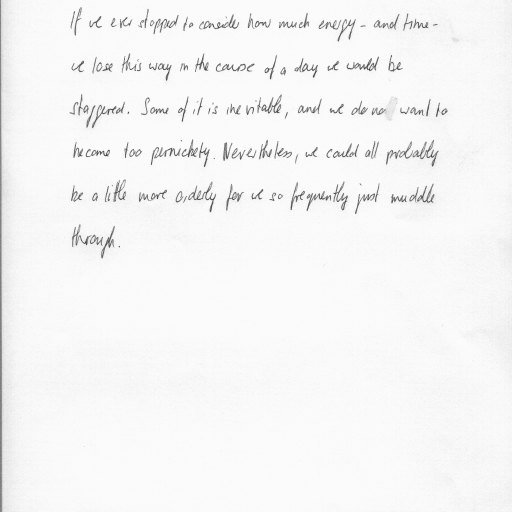 If we ever stopped to consider how much energy - and time -
we lose this way in the course of a day we would be
staggered. Some of it is inevitable, and we do not want to
become too pernickety. Nevertheless, we could all probably
be a little more orderly for we so frequently just muddle
through.